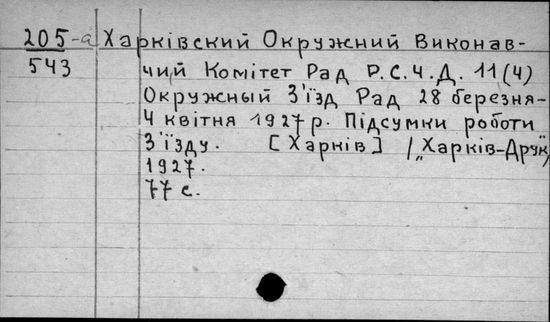 205-а Харківский Окружний Виконав-
543 чий Комітет Рад Р.С.Ч.Д. 11(4)
Окружный З'їзд Рад 28 березня-
4 квітня 1927 р. Підсумки роботи
З'їзду. [Харків] /„Харків-Друк"/
1927.
77 с.